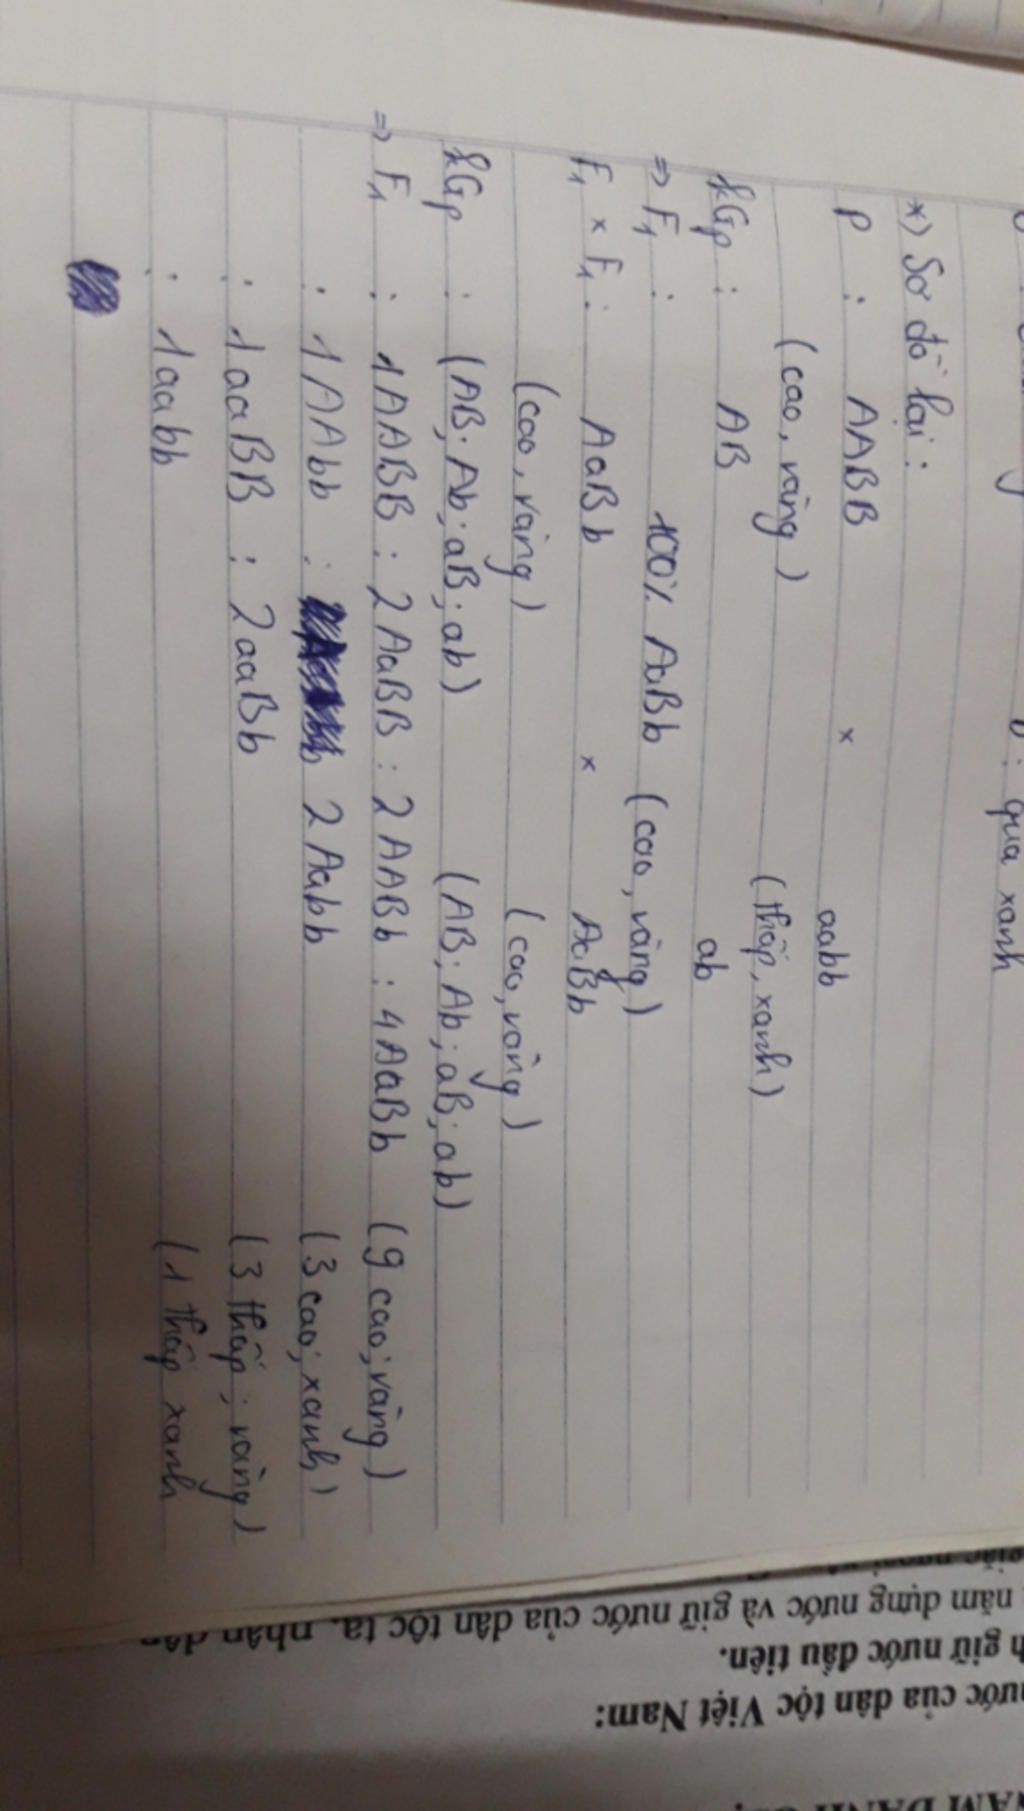 quả xanh
*) Sơ đồ lai:
P : AABB × aabb
(cao, vàng) (thấp, xanh)
kGp : AB ab
=> F1 : 100% AaBb (cao, vàng)
F1 × F1 : AaBb × AaBb
(cao, vàng) (cao, vàng)
kGp : (AB; Ab; aB; ab) (AB; Ab; aB; ab)
=> F1 : 1AABB : 2AaBB : 2AABb : 4AaBb (9 cao; vàng)
: 1AAbb : 2Aabb (3 cao; xanh)
: 1aaBB : 2aaBb (3 thấp; vàng)
: 1aabb (1 thấp xanh
ước của dân tộc Việt Nam:
h giữ nước đầu tiên.
năm dựng nước và giữ nước của dân tộc ta, nhân dân